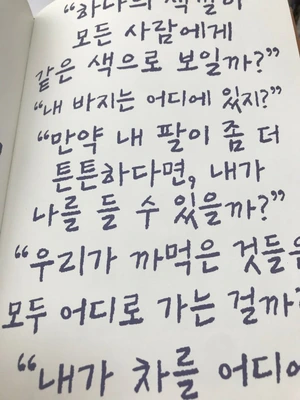 “하나의 색깔이
모든 사람에게
같은 색으로 보일까?”
“내 바지는 어디에 있지?”
“만약 내 팔이 좀 더
튼튼하다면, 내가
나를 들 수 있을까?”
“우리가 까먹은 것들은
모두 어디로 가는 걸까?
“내가 차를 어디에